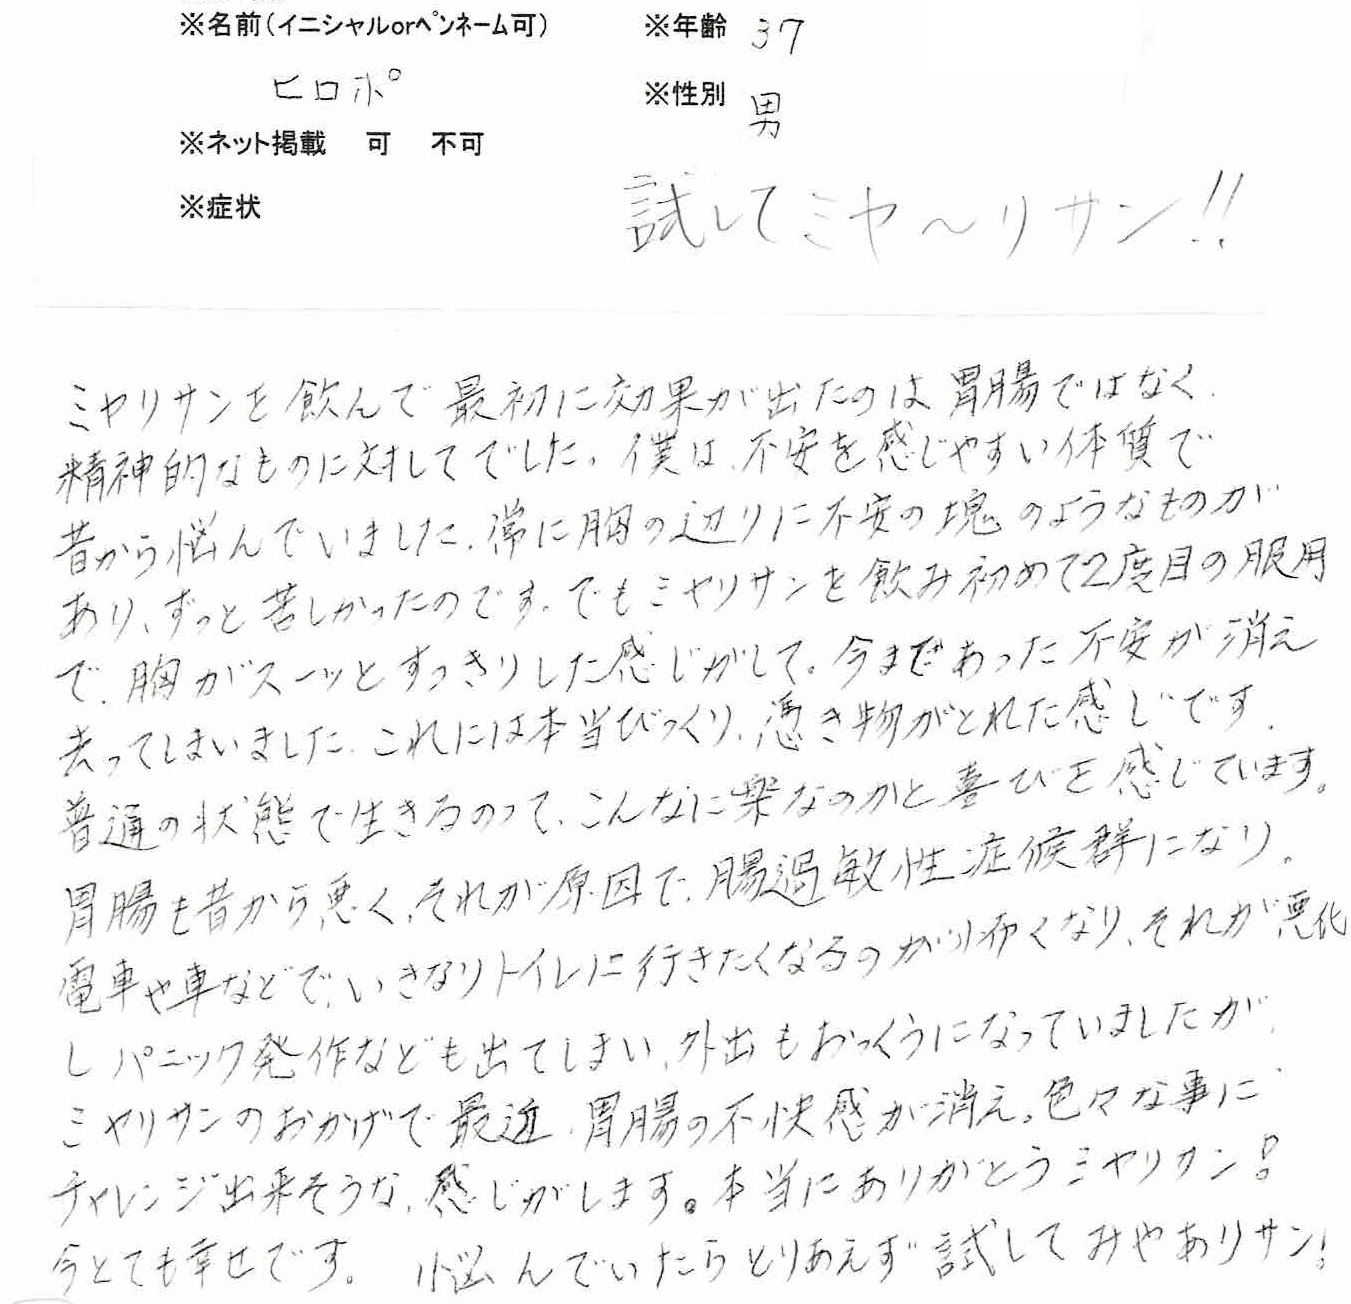 ※名前(イニシャルorペンネーム可)
※年齢 37
ヒロポ
※性別 男
※ネット掲載 可 不可
※症状
試してミヤ〜リサン!!
ミヤリサンを飲んで最初に効果が出たのは胃腸ではなく、
精神的なものに対してでした。僕は、不安を感じやすい体質で
昔から悩んでいました、常に胸の辺りに不安の塊のようなものが
あり、ずっと苦しかったのです。でもミヤリサンを飲み初めて2度目の服用
で、胸がスーッとすっきりした感じがして。今まであった不安が消え
去ってしまいました。これには本当びっくり、憑き物がとれた感じです。
普通の状態で生きるのって、こんなに楽なのかと喜びを感じています。
胃腸も昔から悪く、それが原因で、腸過敏性症候群になり。
電車や車などで、いきなりトイレに行きたくなるのが怖くなり、それが悪化
しパニック発作なども出てしまい、外出もおっくうになっていましたが、
ミヤリサンのおかげで最近、胃腸の不快感が消え。色々な事に
チャレンジ出来そうな、感じがします。本当にありがとうミヤリサン!
今とても幸せです。 悩んでいたらとりあえず試してみやありサン!